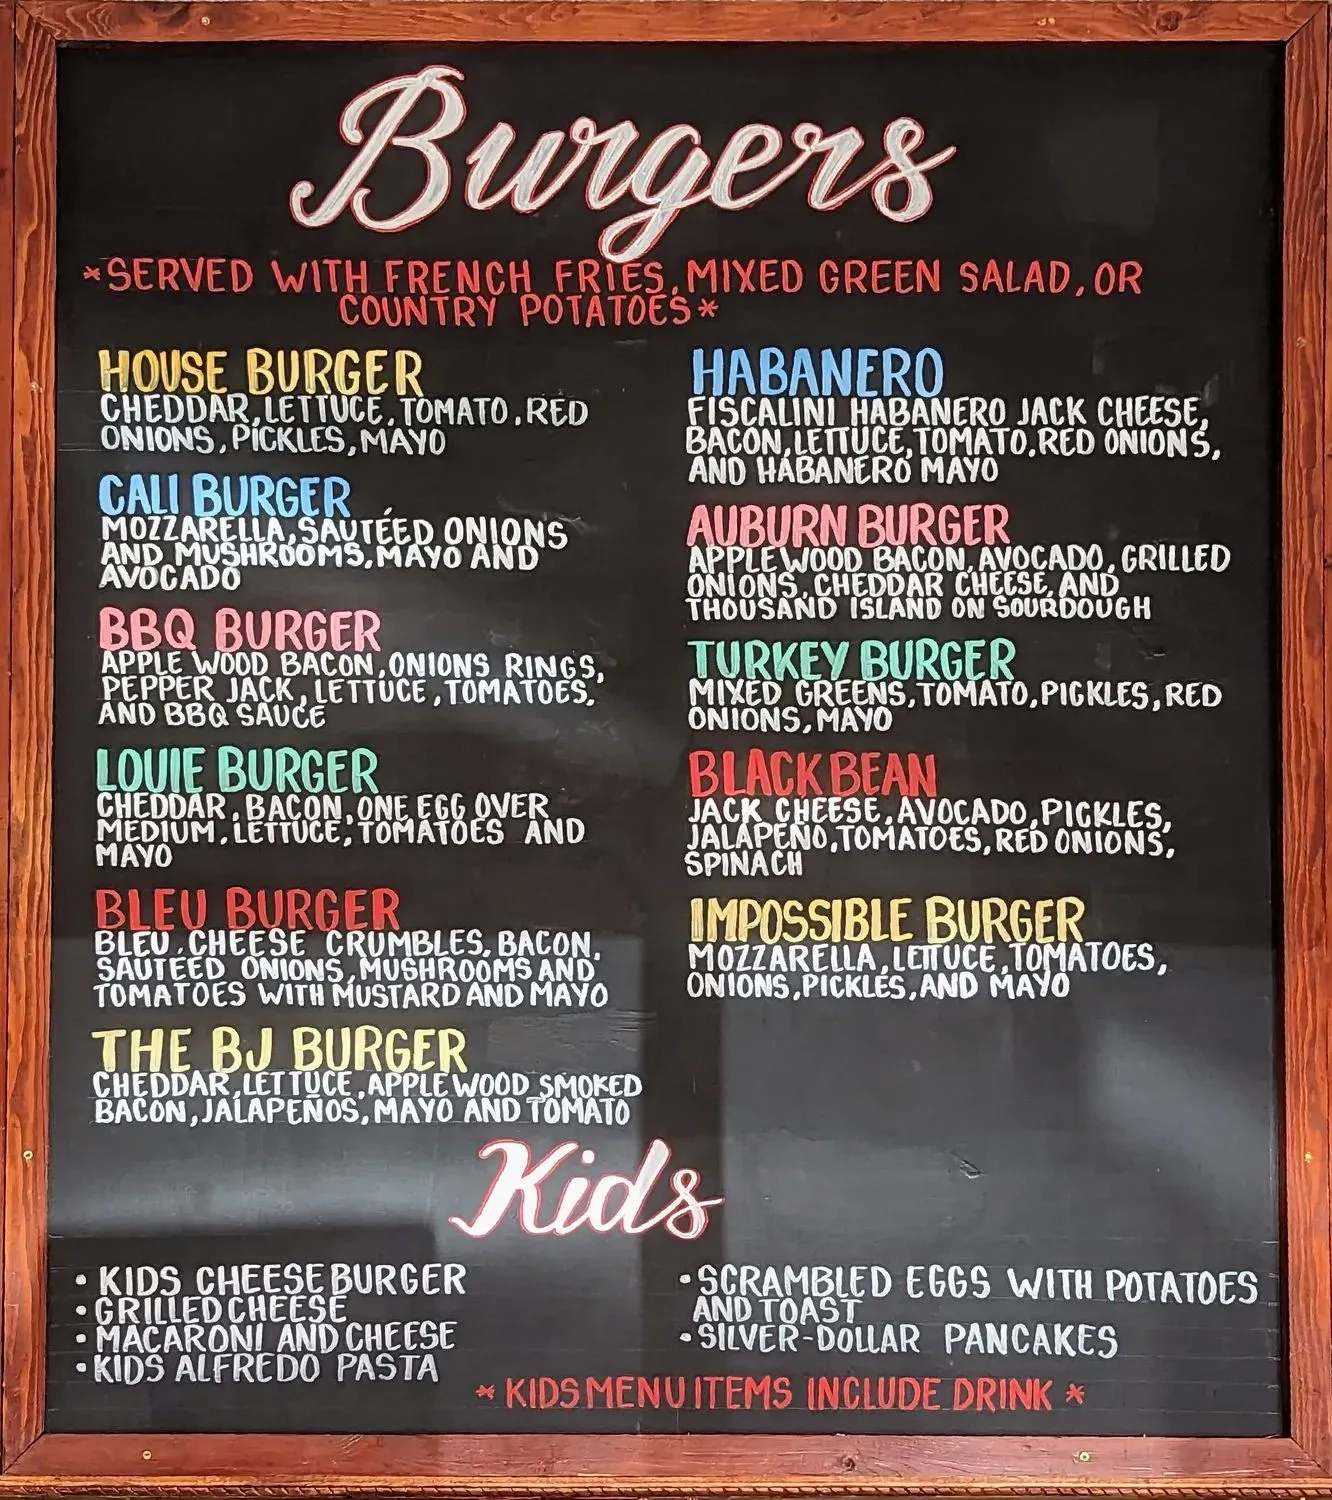 Burgers
*SERVED WITH FRENCH FRIES, MIXED GREEN SALAD, OR
COUNTRY POTATOES*
HOUSE BURGER
CHEDDAR, LETTUCE, TOMATO, RED
ONIONS, PICKLES, MAYO
CALI BURGER
MOZZARELLA, SAUTÉED ONIONS
AND MUSHROOMS, MAYO AND
AVOCADO
BBQ BURGER
APPLE WOOD BACON, ONIONS RINGS,
PEPPER JACK, LETTUCE, TOMATOES,
AND BBQ SAUCE
LOUIE BURGER
CHEDDAR, BACON, ONE EGG OVER
MEDIUM, LETTUCE, TOMATOES AND
MAYO
BLEU BURGER
BLEU CHEESE CRUMBLES, BACON,
SAUTEED ONIONS, MUSHROOMS AND
TOMATOES WITH MUSTARD AND MAYO
THE BJ BURGER
CHEDDAR, LETTUCE, APPLE WOOD SMOKED
BACON, JALAPEÑOS, MAYO AND TOMATO
HABANERO
FISCALINI HABANERO JACK CHEESE,
BACON, LETTUCE, TOMATO, RED ONIONS,
AND HABANERO MAYO
AUBURN BURGER
APPLE WOOD BACON, AVOCADO, GRILLED
ONIONS, CHEDDAR CHEESE, AND
THOUSAND ISLAND ON SOURDOUGH
TURKEY BURGER
MIXED GREENS, TOMATO, PICKLES, RED
ONIONS, MAYO
BLACK BEAN
JACK CHEESE, AVOCADO, PICKLES,
JALAPEÑO, TOMATOES, RED ONIONS,
SPINACH
IMPOSSIBLE BURGER
MOZZARELLA, LETTUCE, TOMATOES,
ONIONS, PICKLES, AND MAYO
Kids
• KIDS CHEESEBURGER
• GRILLED CHEESE
• MACARONI AND CHEESE
• KIDS ALFREDO PASTA
• SCRAMBLED EGGS WITH POTATOES
AND TOAST
• SILVER-DOLLAR PANCAKES
* KIDS MENU ITEMS INCLUDE DRINK *